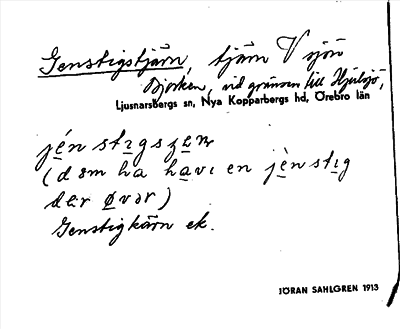 Genstigstjärn, tjärn V sjön
Björken, vid gränsen till Hjulsjö,
Ljusnarsbergs sn, Nya Kopparbergs hd, Örebro län
jén stıgs
(d øm ha havı en jènstıg
dær øvər)
Genstigkärn ek.
JÖRAN SAHLGREN 1913